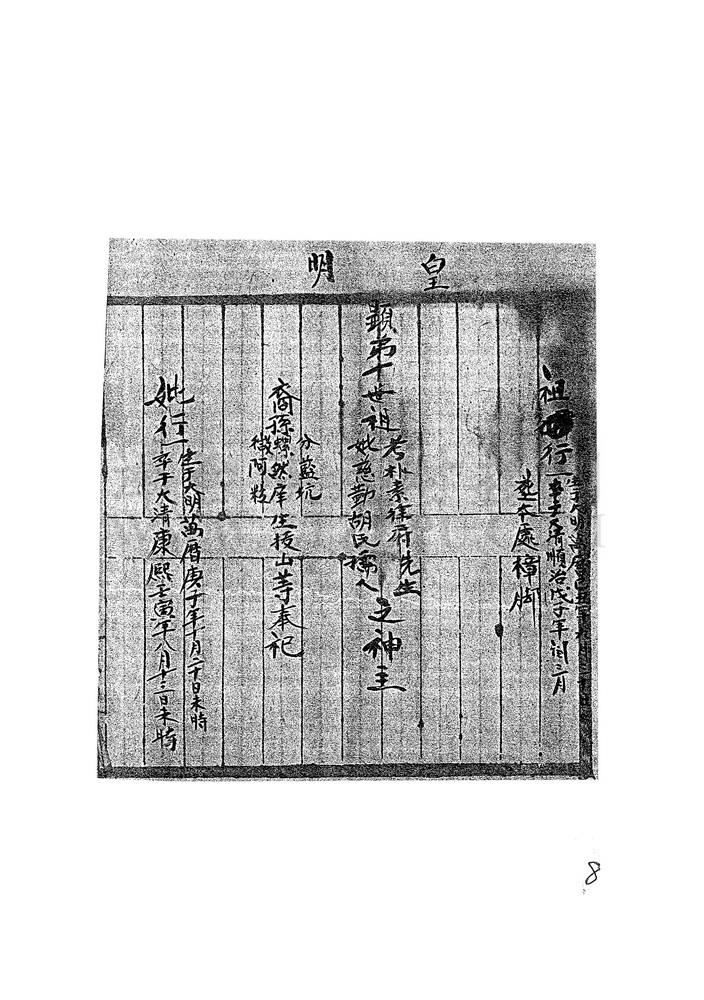 皇明
祖 行一
生于明萬曆
大清順治戊子年閏三月
葬本處樟脚
顯弟十世祖
考朴素徐府先生
妣慈勤胡氏孺人
之神主
分藍坑
裔孫
微阿粒
生技山等奉祀
妣行一
生于大明萬曆庚子年十月二十日未時
卒于大清康熙壬寅年八月十三日未時
8